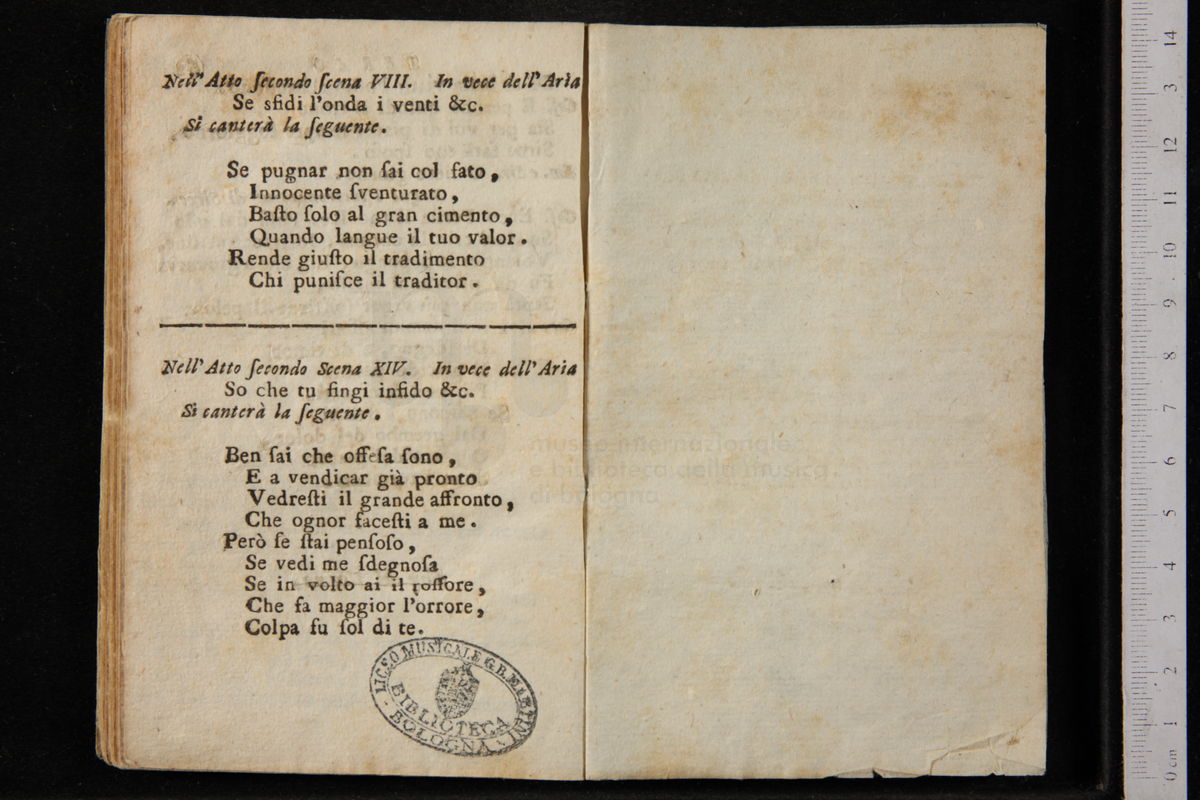 Nell' Atto ſecondo ſcena VIII. In vece dell' Aria
Se sfidi l'onda i venti &c.
Si canterà la ſeguente.
Se pugnar non ſai col fato,
Innocente ſventurato,
Baſto ſolo al gran cimento,
Quando langue il tuo valor.
Rende giuſto il tradimento
Chi puniſce il traditor.
Nell' Atto ſecondo Scena XIV. In vece dell' Aria
So che tu fingi infido &c.
Si canterà la ſeguente.
Ben ſai che offeſa ſono,
E a vendicar già pronto
Vedreſti il grande affronto,
Che ognor faceſti a me.
Però ſe ſtai penſoſo,
Se vedi me ſdegnoſa
Se in volto ai il roſſore,
Che fa maggior l'orrore,
Colpa fu ſol di te.
LICEO MUSICALE G.B. MARTINI
BIBLIOTECA
- BOLOGNA -
museo internazionale
e biblioteca della musica
di bologna
0 cm 1 2 3 4 5 6 7 8 9 10 11 12 3 14